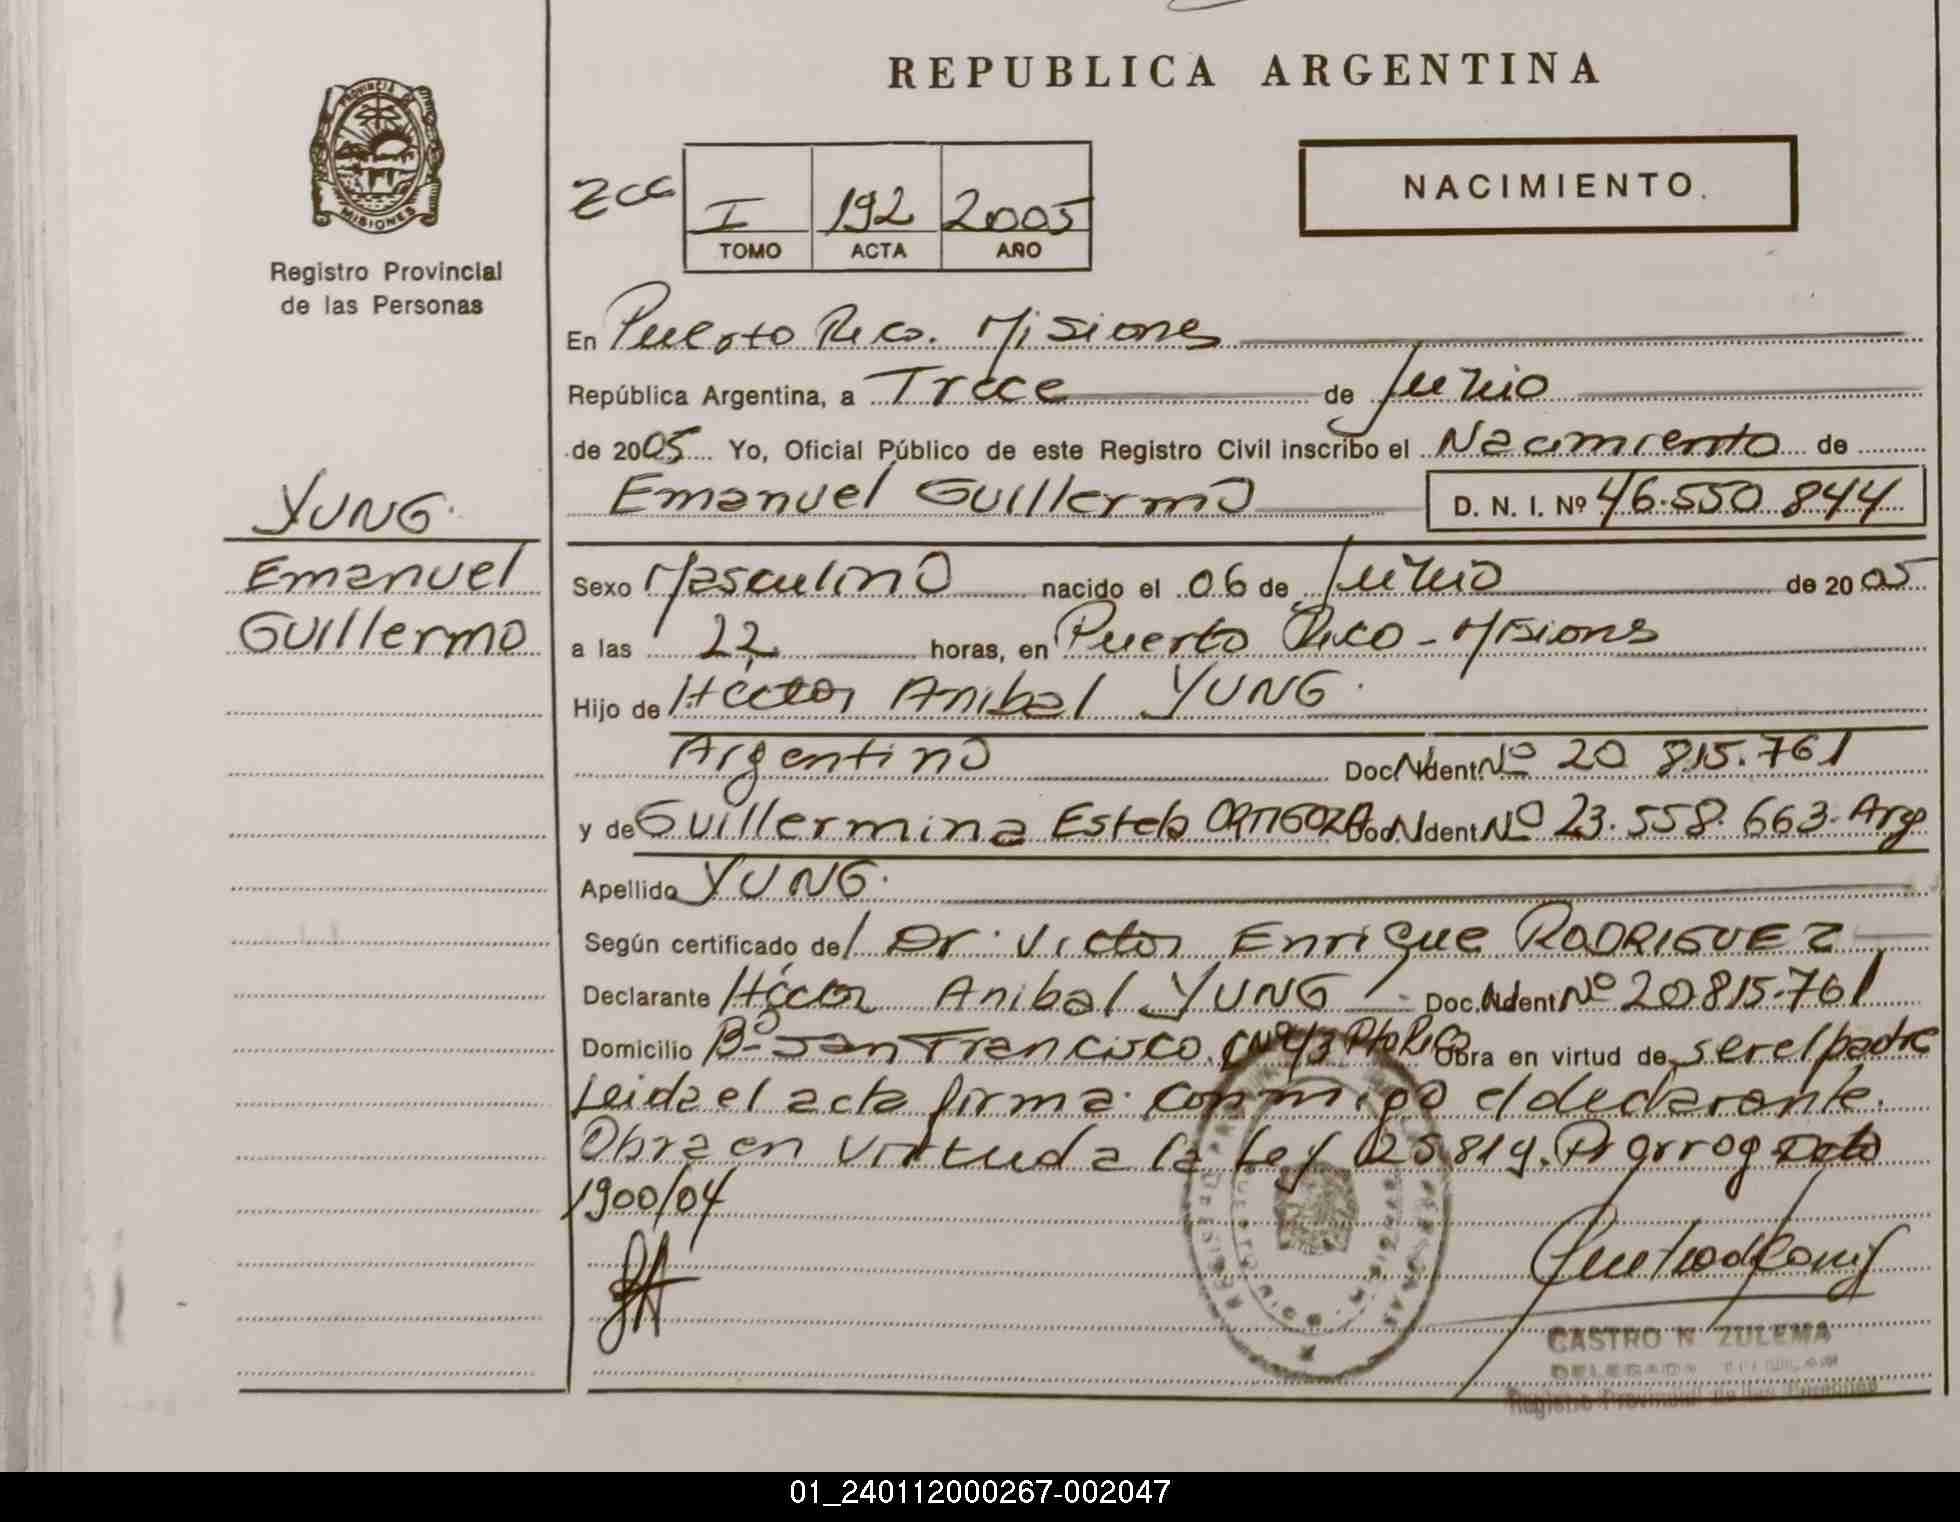 REPUBLICA ARGENTINA
PROVINCIA DE
MISIONES
Registro Provincial
de las Personas
NACIMIENTO.
I 192 2005
TOMO ACTA AÑO
En Puerto Rico. Misiones
República Argentina, a Trece de Junio
de 2005 Yo, Oficial Público de este Registro Civil inscribo el Nacimiento de
Emanuel Guillermo D. N. I. Nº 46.550.844
YUNG.
Emanuel
Guillermo
Sexo Masculino nacido el 06 de Junio de 2005
a las 22 horas, en Puerto Rico - Misiones
Hijo de Héctor Anibal YUNG.
Argentino Doc. Ident Nº 20.815.761
y de Guillermina Estela ORTIGOZA Doc. Ident Nº 23.558.663. Arg
Apellido YUNG.
Según certificado del Dr. Victor Enrique RODRIGUEZ
Declarante Héctor Anibal YUNG Doc. Ident Nº 20.815.761
Domicilio Bº San Francisco. Pto Rico Obra en virtud de ser el padre
Leida el acta firma conmigo el declarante.
Obra en virtud a la Ley 25819. Prorrog Dcto
1900/04
CASTRO N ZULEMA
DELEGADA TITULAR
Registro Provincial de las Personas
01_240112000267-002047